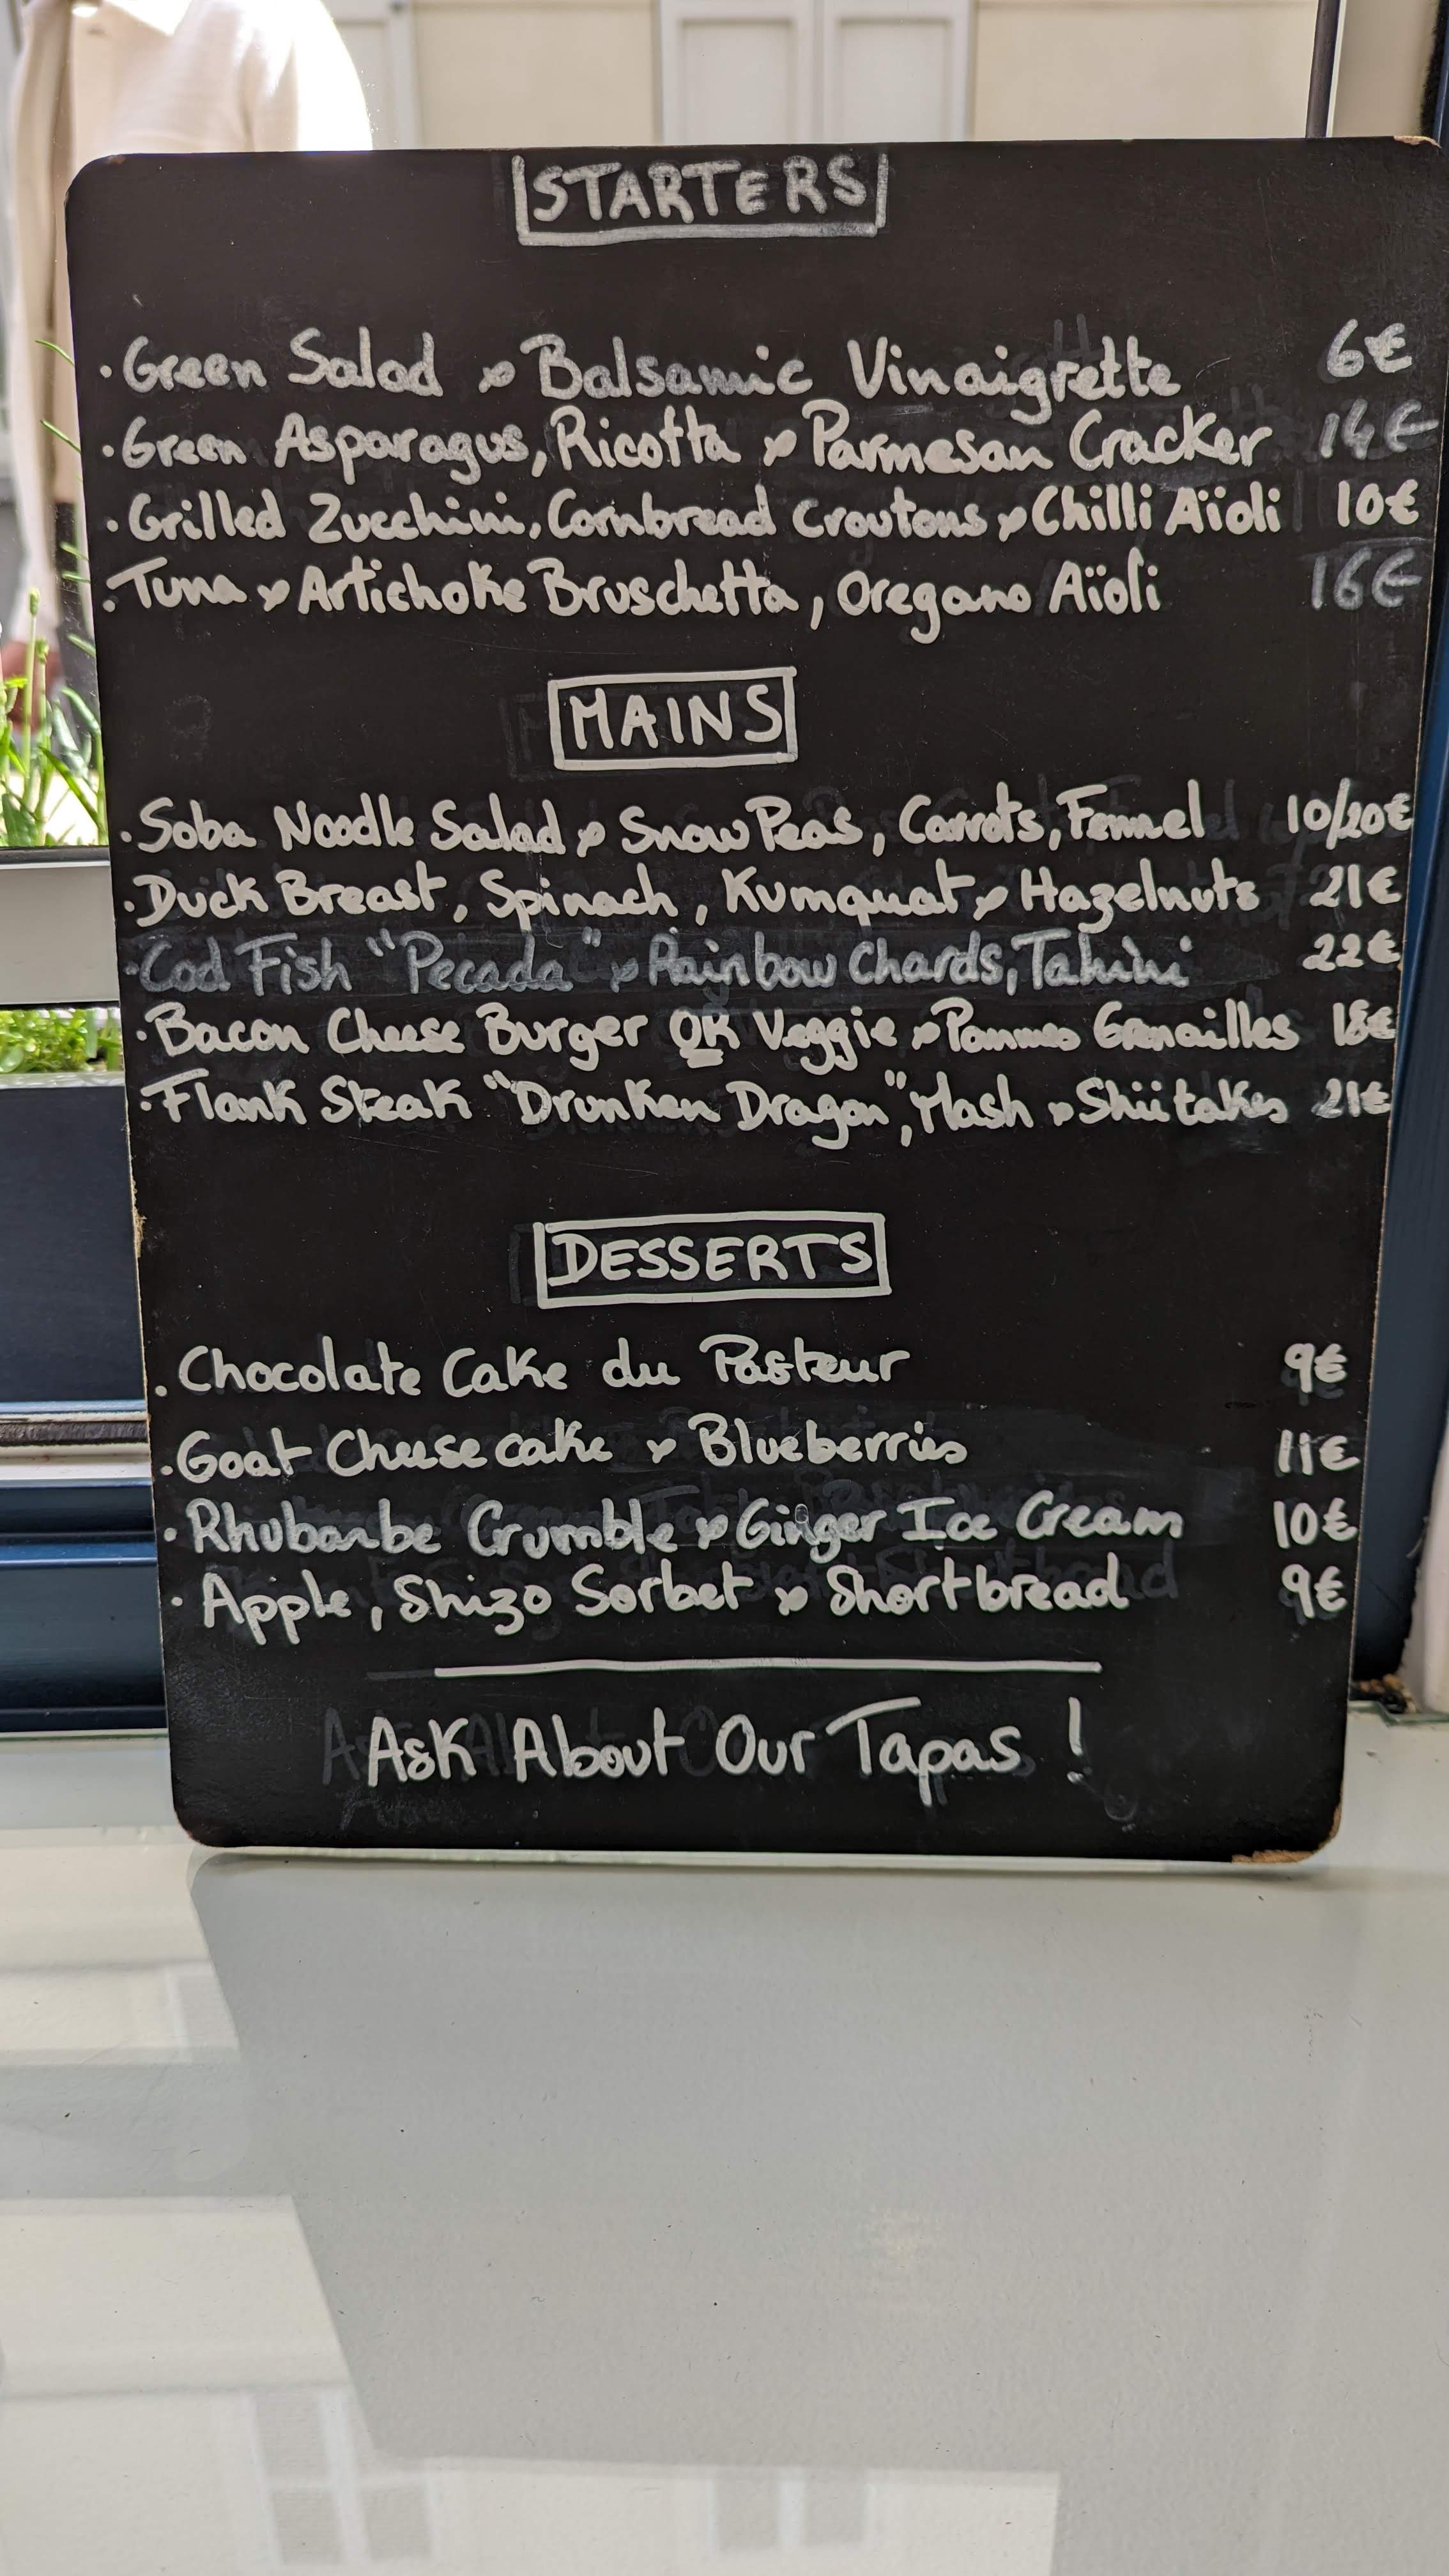 STARTERS
· Green Salad & Balsamic Vinaigrette 6€
· Green Asparagus, Ricotta & Parmesan Cracker 14€
· Grilled Zucchini, Cornbread Croutons & Chilli Aïoli 10€
· Tuna & Artichoke Bruschetta, Oregano Aïoli 16€
MAINS
· Soba Noodle Salad & Snow Peas, Carrots, Fennel 10/20€
· Duck Breast, Spinach, Kumquat & Hazelnuts 21€
· Cod Fish "Pecada" & Rainbow Chards, Tahini 22€
· Bacon Cheese Burger OR Veggie & Pommes Grenailles 18€
· Flank Steak "Drunken Dragon", Mash & Shiitakes 21€
DESSERTS
· Chocolate Cake du Pasteur 9€
· Goat Cheesecake & Blueberries 11€
· Rhubarbe Crumble & Ginger Ice Cream 10€
· Apple, Shizo Sorbet & Shortbread 9€
Ask About Our Tapas !